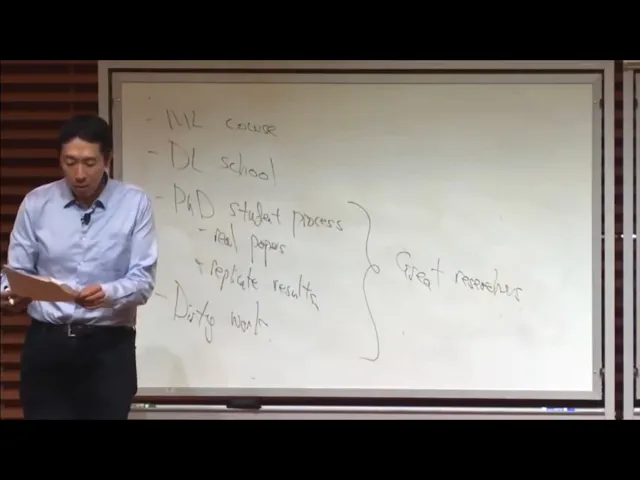 - ML course
- DL school
- PhD student process
- read papers
- replicate results
- Dirty work
Great researchers